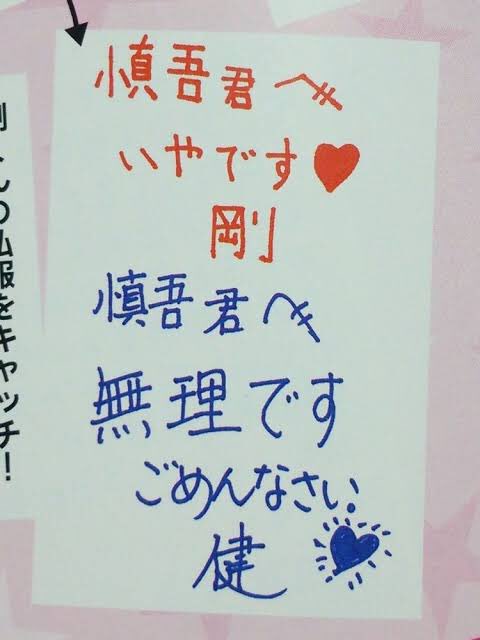 慎吾君へ
いやです♥
剛
慎吾君へ
無理です
ごめんなさい
健
くんの私服をキャッチ!